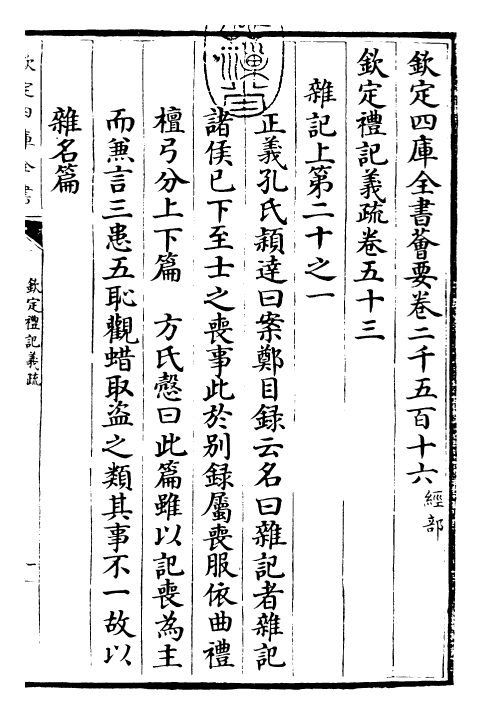 欽定四庫全書薈要卷二千五百十六 經部
欽定禮記義疏卷五十三
雜記上第二十之一
正義孔氏穎達曰案鄭目録云名曰雜記者雜記
諸侯已下至士之喪事此於别録屬喪服依曲禮
檀弓分上下篇 方氏慤曰此篇雖以記喪為主
而兼言三患五恥觀蜡取盗之類其事不一故以
雜名篇
欽定四庫全書
欽定禮記義疏
一